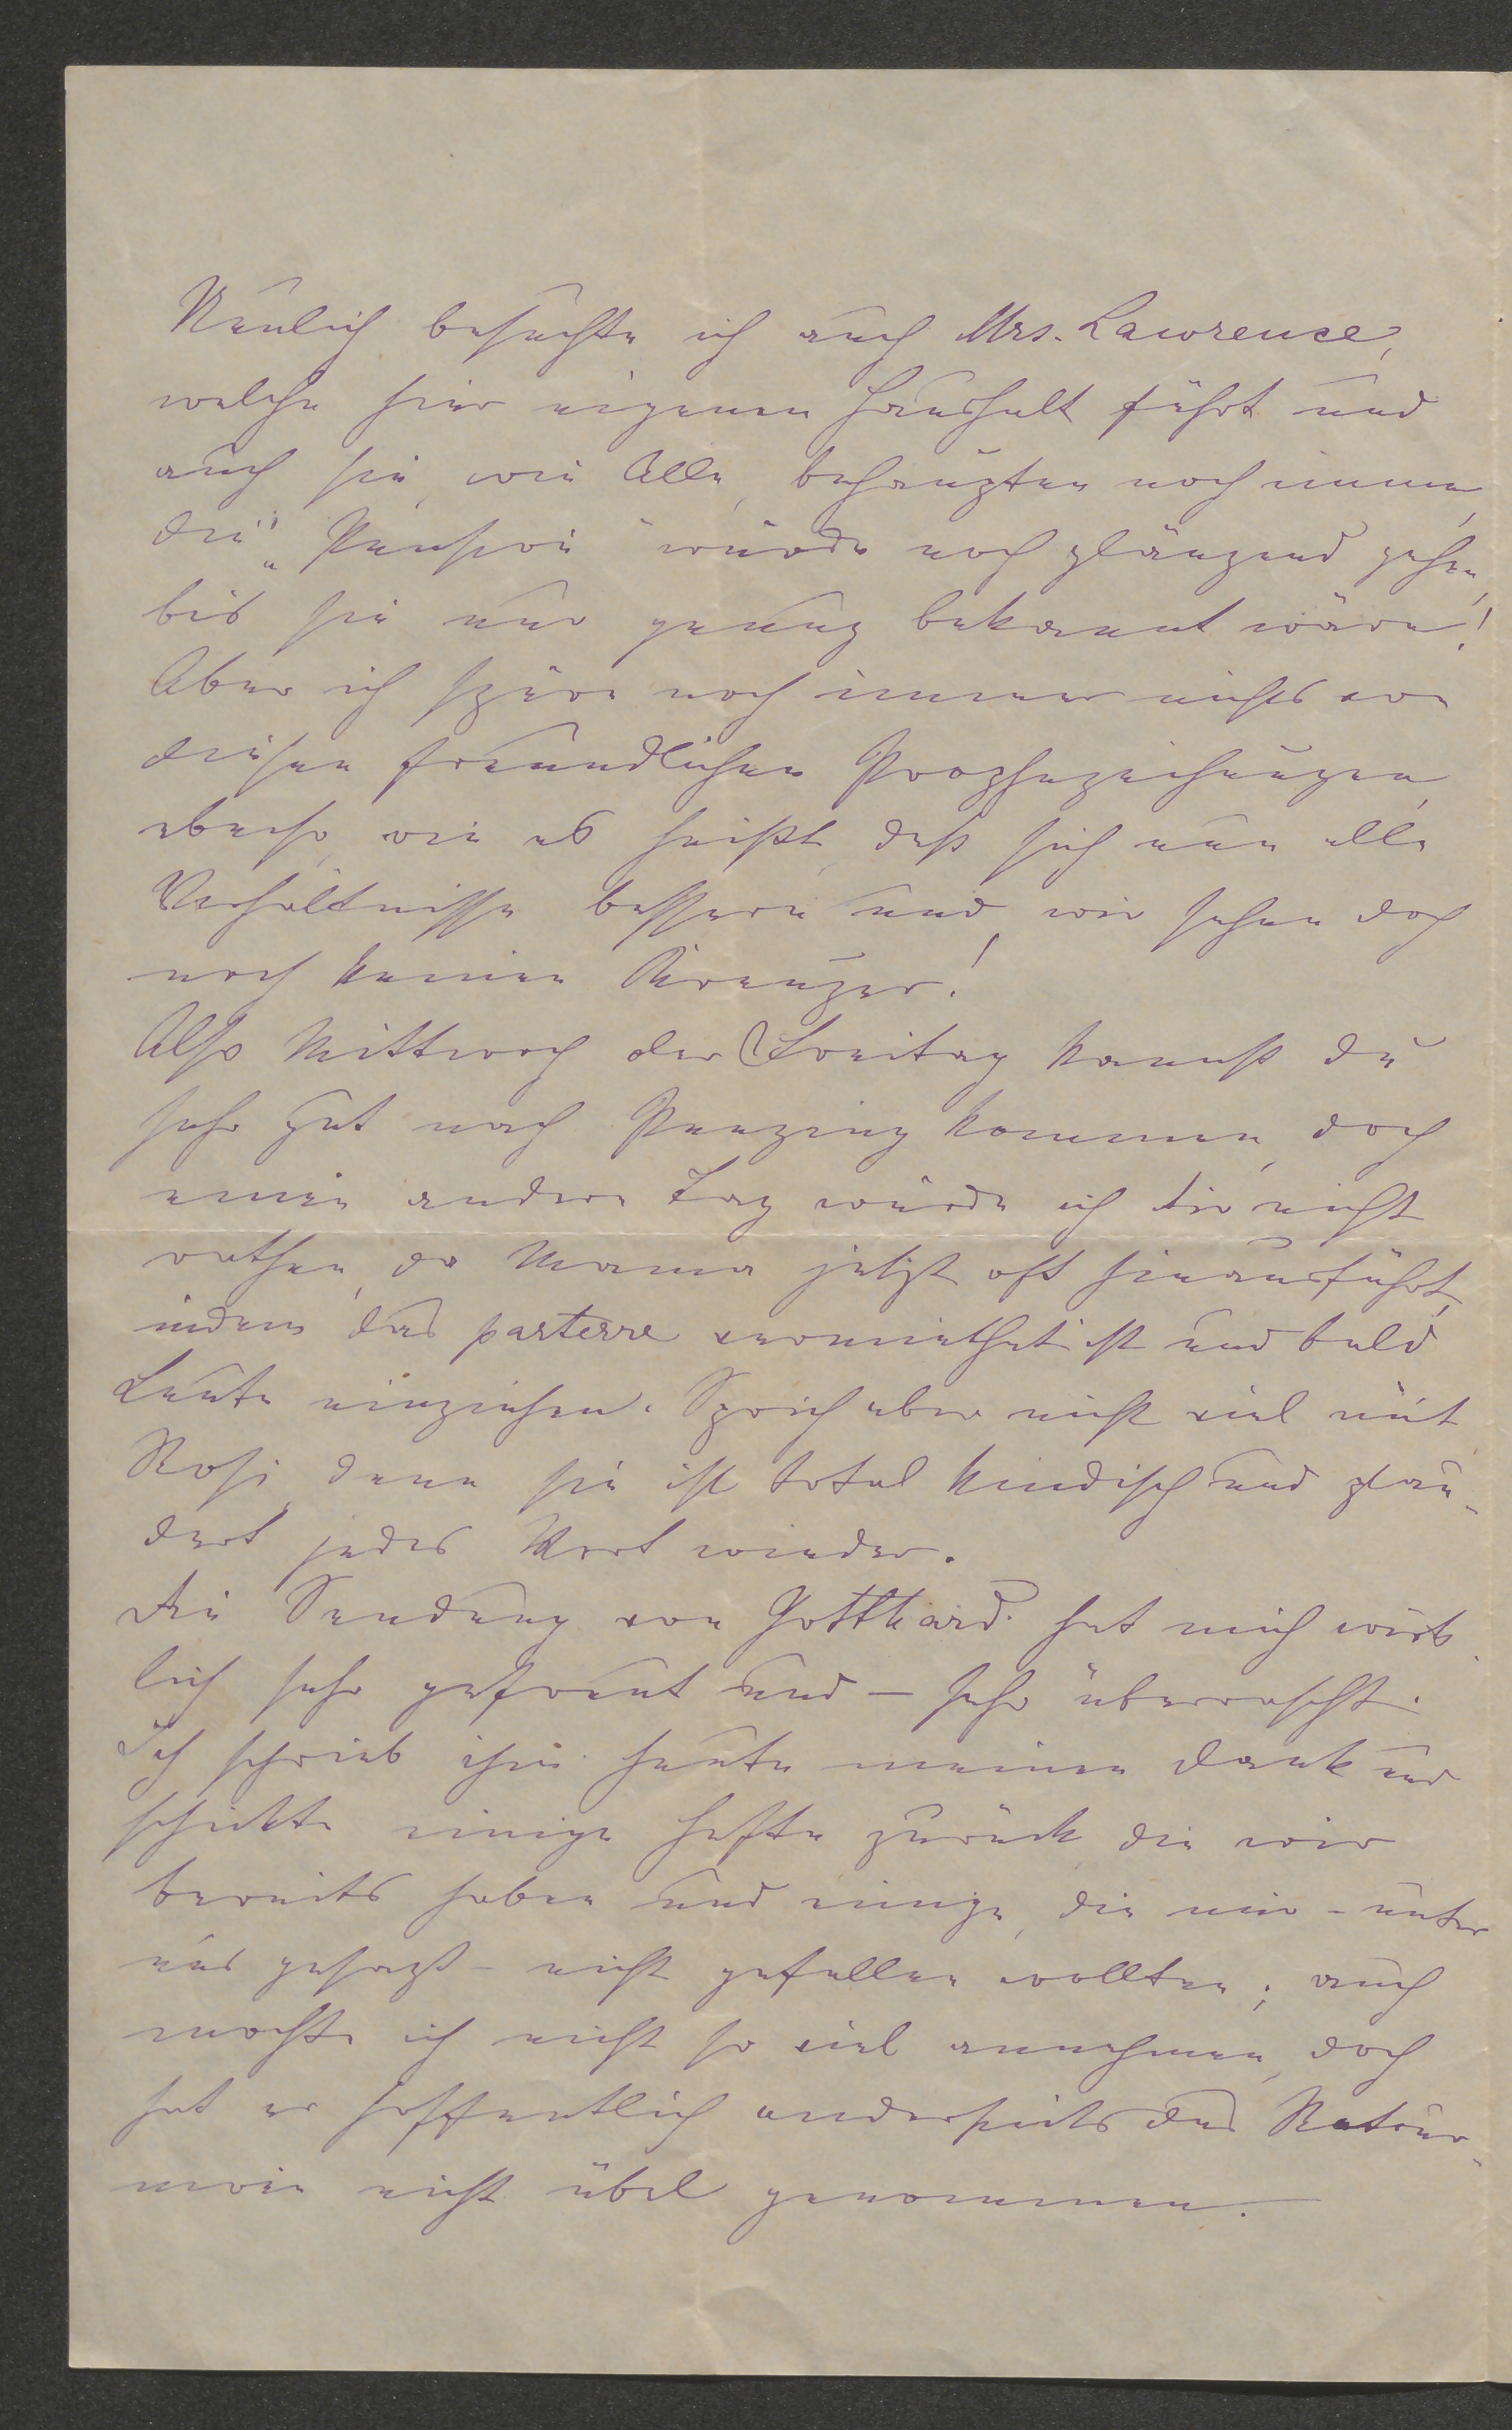 Neulich besuchte ich auch Mrs. Lawrence,
welche hier eigenen Haushalt führt und
auch sie, wie Alle, behaupten noch immer,
die „Pension" würde noch glänzend gehen,
bis sie nur genug bekannt wäre!
Aber ich spüre noch immer nichts von
diesen freundlichen Prophezeihungen,
ebenso, wie es heißt, daß sich nun alle
Verhältnisse bessern und, wir sehen doch
noch keinen Kreuzer!
Also Mittwoch oder Freitag kannst du
sehr gut nach Penzing kommen, doch
einen andern Tag würde ich dir nicht
rathen, da Mama jetzt oft hinausfährt,
indem das parterre vermiethet ist und bald
Leute einziehen. Sprich aber nicht viel mit
Rosi, denn sie ist total kindisch und plau-
dert jedes Wort wieder.
Die Sendung von Gotthard hat mich wirk-
lich sehr gefreut und – sehr überrascht.
Ich schrieb ihm heute meinen Dank und
schickte einige Hefte zurück, die wir
bereits haben und einige, die mir – unter
uns gesagt – nicht gefallen wollten; auch
mochte ich nicht so viel annehmen, doch
hat er hoffentlich anderseits das Retour-
niren nicht übel genommen. —